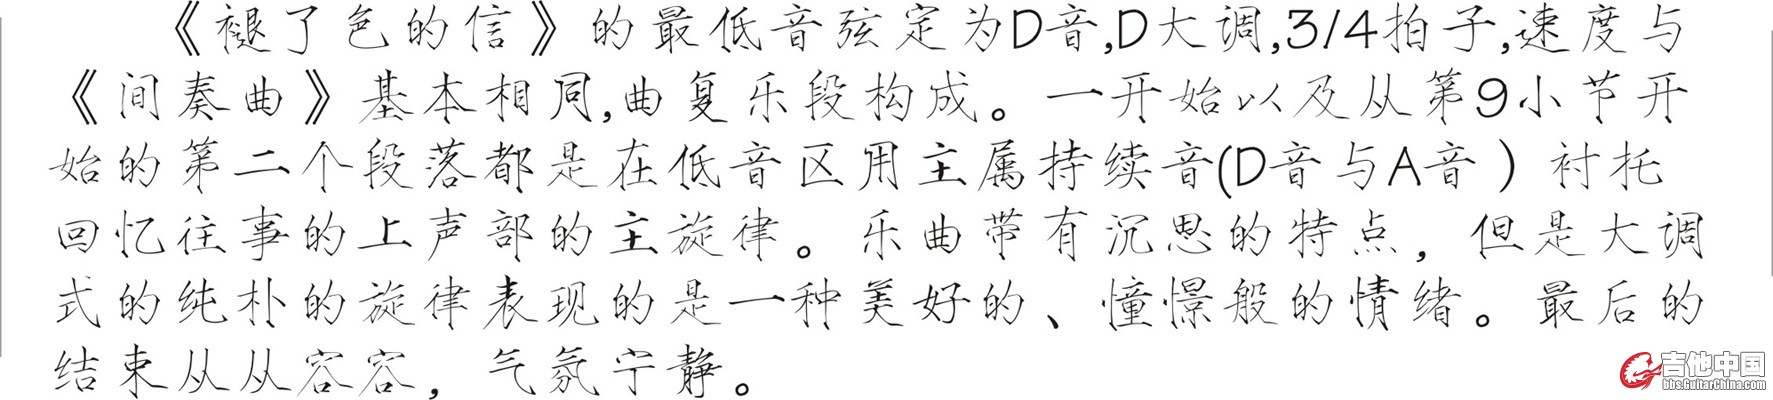 《褪了色的信》的最低音弦定为D音,D大调,3/4拍子,速度与
《间奏曲》基本相同,曲复乐段构成。一开始以及从第9小节开
始的第二个段落都是在低音区用主属持续音(D音与A音）衬托
回忆往事的上声部的主旋律。乐曲带有沉思的特点，但是大调
式的纯朴的旋律表现的是一种美好的、憧憬般的情绪。最后的
结束从从容容，气氛宁静。
吉他中国
bbs.GuitarChina.com